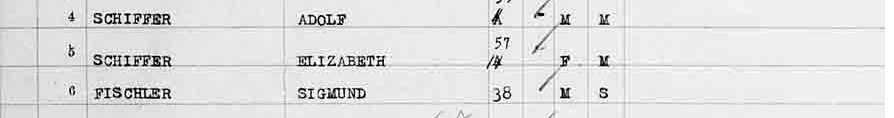 4 SCHIFFER ADOLF M M
5 SCHIFFER ELIZABETH 57 F M
6 FISCHLER SIGMUND 38 M S